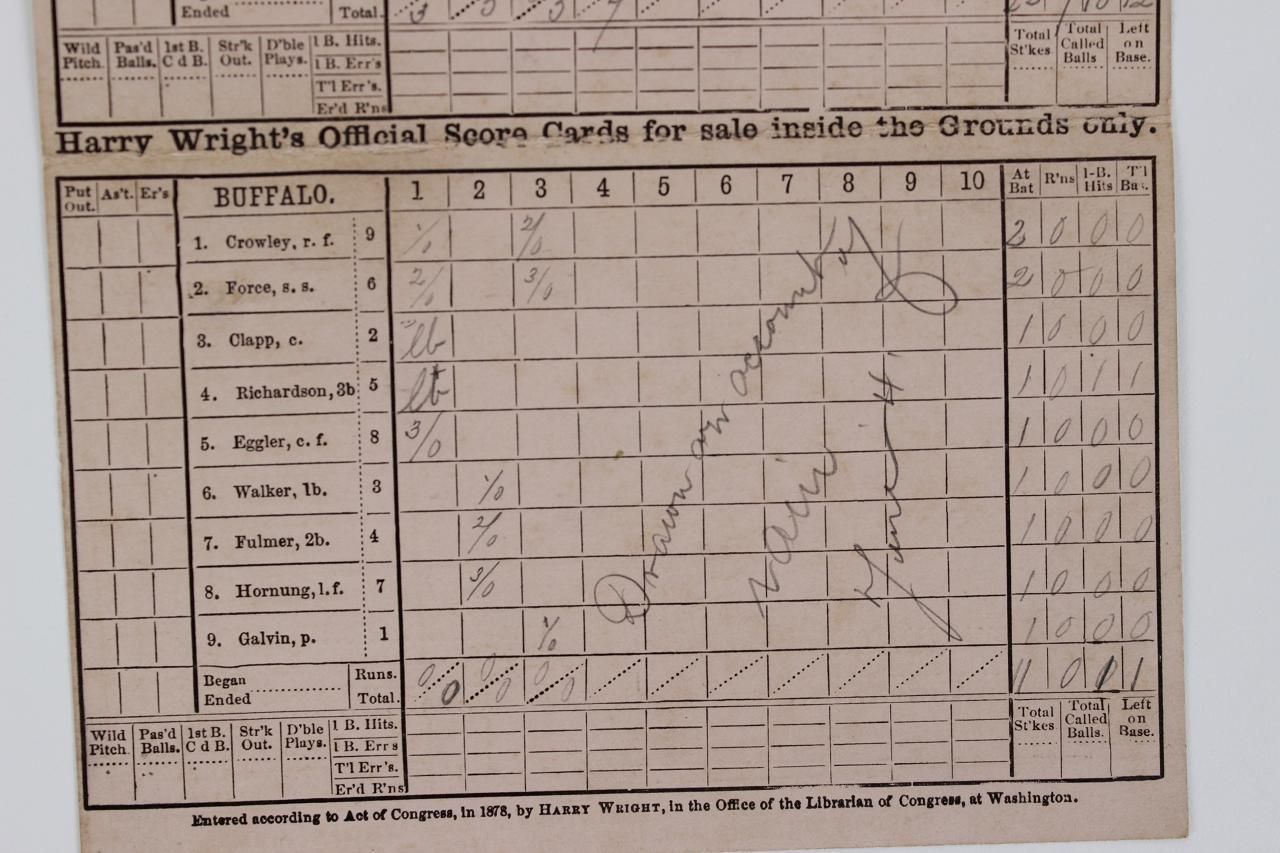 Ended Total.
Wild Pitch. Pas'd Balls. 1st B. C d B. Str'k Out. D'ble Plays. 1 B. Hits. Total St'kes Total Called Balls Left on Base.
1 B. Err's
T'l Err's.
Er'd R'ns
Harry Wright's Official Score Cards for sale inside the Grounds only.
Put Out. As't. Er's BUFFALO. 1 2 3 4 5 6 7 8 9 10 At Bat R'ns 1-B. Hits T'l Bas.
1. Crowley, r. f. 9 1/0 2/0 2 0 0 0
2. Force, s. s. 6 2/0 3/0 2 0 0 0
3. Clapp, c. 2 lb 1 0 0 0
4. Richardson, 3b 5 lb 1 0 1 1
5. Eggler, c. f. 8 3/0 1 0 0 0
6. Walker, 1b. 3 1/0 1 0 0 0
7. Fulmer, 2b. 4 2/0 1 0 0 0
8. Hornung, l. f. 7 3/0 1 0 0 0
9. Galvin, p. 1 1/0 1 0 0 0
Began Runs. 0 0 0
Ended Total. 0 0 0 11 0 1 1
Drawn on account of
rain
June 4
Wild Pitch. Pas'd Balls. 1st B. C d B. Str'k Out. D'ble Plays. 1 B. Hits. Total St'kes Total Called Balls. Left on Base.
1 B. Err s
T'l Err's.
Er'd R'ns
Entered according to Act of Congress, in 1878, by HARRY WRIGHT, in the Office of the Librarian of Congress, at Washington.